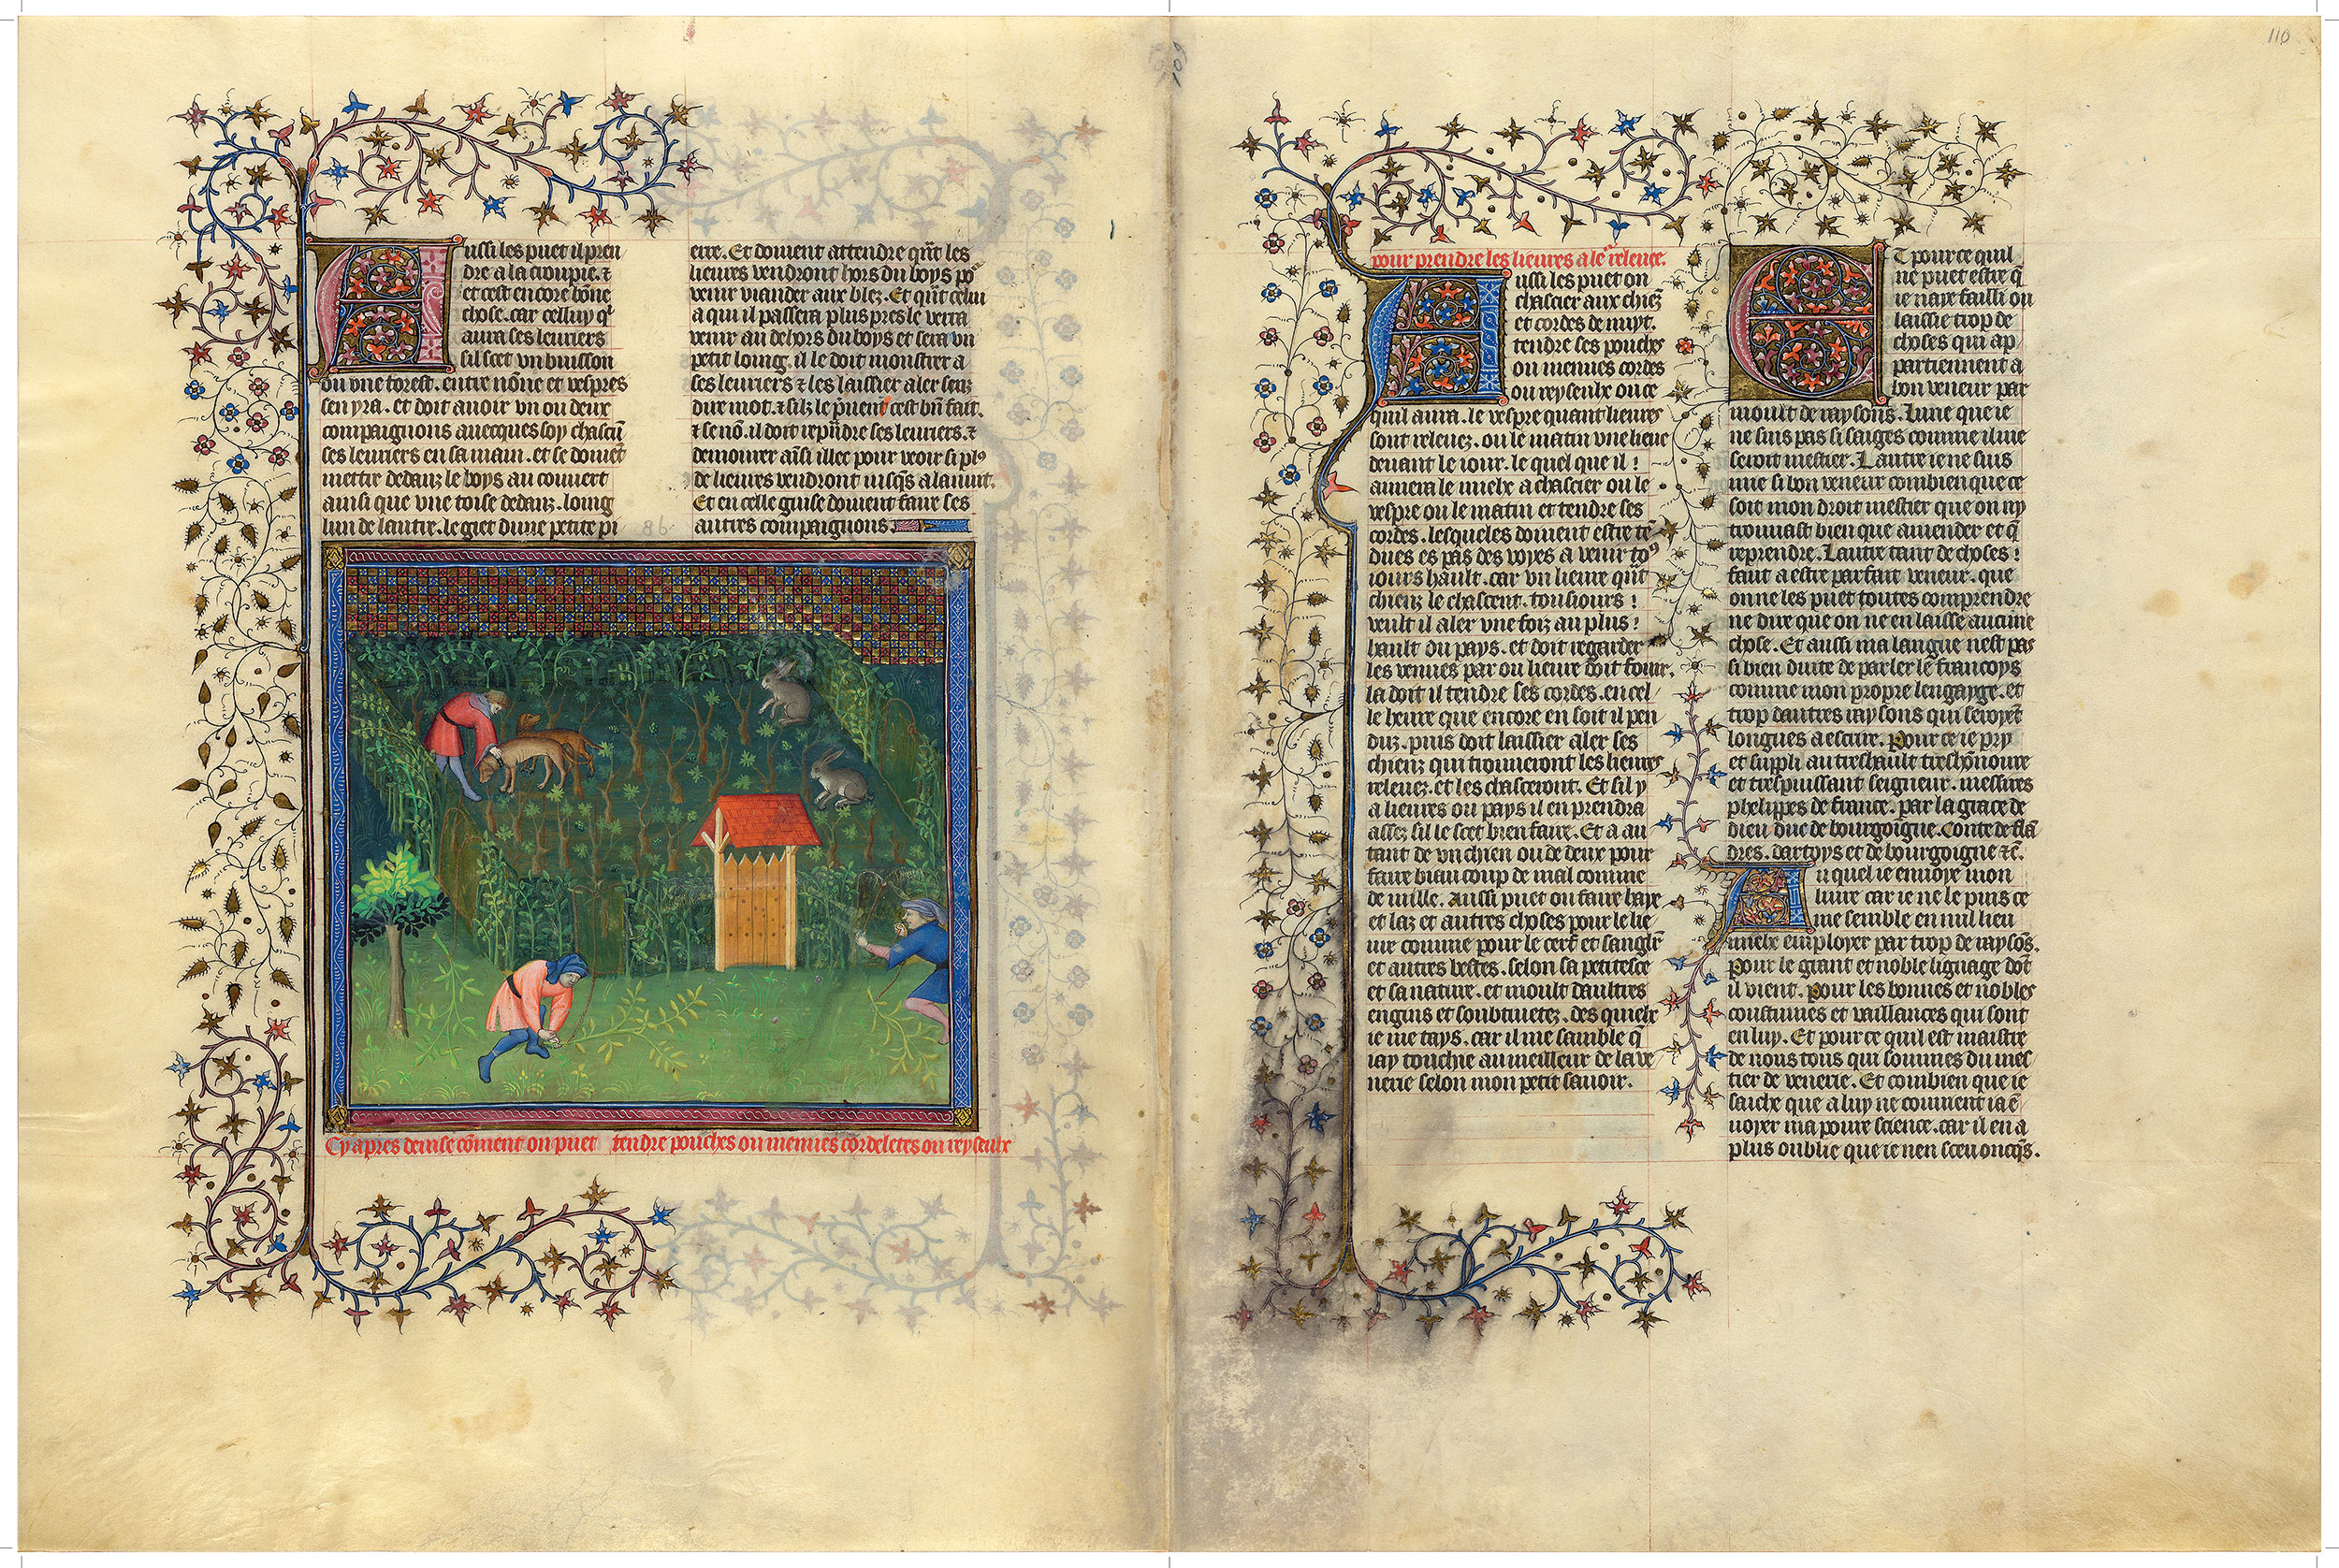 Aussi les puet il pren
dre a la croupie. ⁊
et cest encore bõne
chose. car celluy qͥ
aura ses leuriers
sil scet vn buisson
ou vne forest. entre nõne et vespres
sen yra. et doit auoir vn ou deux
compaignons auecques soy chascũ
ses leuriers en sa main. et se doiuẽt
mettre dedanz le boys au couuert
ainsi que vne toise dedanz. loing
lun de lautre. le giet dune petite pi
86
erre. Et doiuent attendre qũt les
lieures vendront hors du boys po᷑
venir viander aux blez. Et qũt celui
a qui il passera plus pres le verra
venir au dehors du boys et sera vn
petit loing. il le doit monstrer a
ses leuriers ⁊ les laissier aler senz
dire mot. ⁊ silz le p̃nent cest bñ fait.
⁊ se nõ. il doit rep̃ndre ses leuriers. ⁊
demourer aĩsi illec pour veoir si plꝰ
de lieures vendront iusq̃s a la nuit.
Et en celle guise doiuent faire ses
autres compaignons
Cy apres deuise cõment on puet tendre pouches ou menues cordeletes ou reyseulx
109
110
pour prendre les lieures a le releuee.
Aussi les puet on
chascier aux chiẽz
et cordes de nuyt.
tendre ses pouches
ou menues cordes
ou reyseulx ou ce
quil aura. le vespre quant lieures
sont releuez. ou le matin vne lieue
deuant le iour. le quel que il
aimera le mielx a chascier ou le
vespre ou le matin et tendre ses
cordes. lesqueles doiuent estre tẽ
dues es pas des voyes a venir toꝰ
iours hault. car vn lieure qũt
chienz le chascent. tousiours
veult il aler vne foiz au plus
hault du pays. et doit regarder
les venues par ou lieure doit fouir.
la doit il tendre ses cordes. en cel
le heure que encore en soit il pen
duz. puis doit laissier aler ses
chienz qui trouueront les lieures
releuez. et les chasceront. Et sil y
a lieures ou pays il en prendra
assez sil le scet bien faire. Et a au
tant de vn chien ou de deux pour
faire biau coup de mal comme
de mille. Aussi puet on faire haye
et laz et autres choses pour le lie
ure comme pour le cerf et sanglr̃
et autres bestes. selon sa petitesce
et sa nature. et moult daultres
engins et soubtiuetez. des quielx
ie me tays. car il me samble q̃
iay touchie au meilleur de la ve
nerie selon mon petit sauoir.
Et pour ce quil
ne puet estre q̃
ie naye failli ou
laissie trop de
choses qui ap
partiennent a
bon veneur par
moult de raysons. Lune que ie
ne suis pas si saiges comme il me
seroit mestier. Lautre ie ne suis
mie si bon veneur combien que ce
soit mon droit mestier que on ny
trouuast bien que amender et q̃
reprendre. Lautre tant de choses
faut a estre parfait veneur. que
on ne les puet toutes comprendre
ne dire que on ne en laisse aucune
chose. Et aussi ma langue nest pas
si bien duite de parler le francoys
comme mon propre lengayge. et
trop dautres raysons qui seroyẽt
longues a escrire. Pour ce ie pry
et suppli au treshault treshõnoure
et trespuissant seigneur. messires
phelippes de france. par la grace de
dieu duc de bourgoigne. Conte de flã
dres. dartoys et de bourgoigne ⁊c̃.
Au quel ie enuoye mon
liure car ie ne le puis ce
me semble en nul lieu
mielx employer par trop de raysõs.
Pour le grant et noble lignage dõt
il vient. Pour les bonnes et nobles
coustumes et vaillances qui sont
en luy. Et pour ce quil est maistre
de nous tous qui sommes du mes
tier de venerie. Et combien que ie
saiche que a luy ne conuient ia ẽ
uoyer ma poure science. car il en a
plus oublie que ie nen sceu oncq̃s.